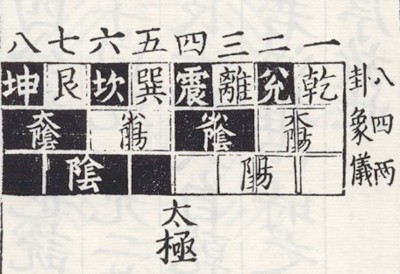 一二三四五六七八
八卦 乾兌離震巽坎艮坤
四象 太陽 少陰 少陽 太陰
兩儀 陽 陰
太極